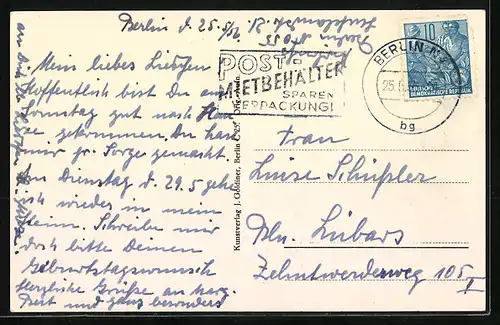 Berlin d. 25.5.
Mein liebes Lieschen
Hoffentlich bist Du am
Sonntag gut nach Hau
se gekommen. Du hast
mir gr. Sorge gemacht.
Am Dienstag d. 29.5 gehe
ich wieder in mein
Heim. Schreibe mir
doch bitte Deinen
Geburtstagswunsch
Herzliche Grüße an Marg.
und ganz besonders
Berlin
POST-
MIETBEHÄLTER
SPAREN
VERPACKUNG!
BERLIN
25.
bg
10
DEUTSCHE
DEMOKRATISCHE REPUBLIK
Kunstverlag J. Goldiner, Berlin C 25
Frau
Luise Schüßler
Bln. Lübars
Zehntwerderweg 105
I